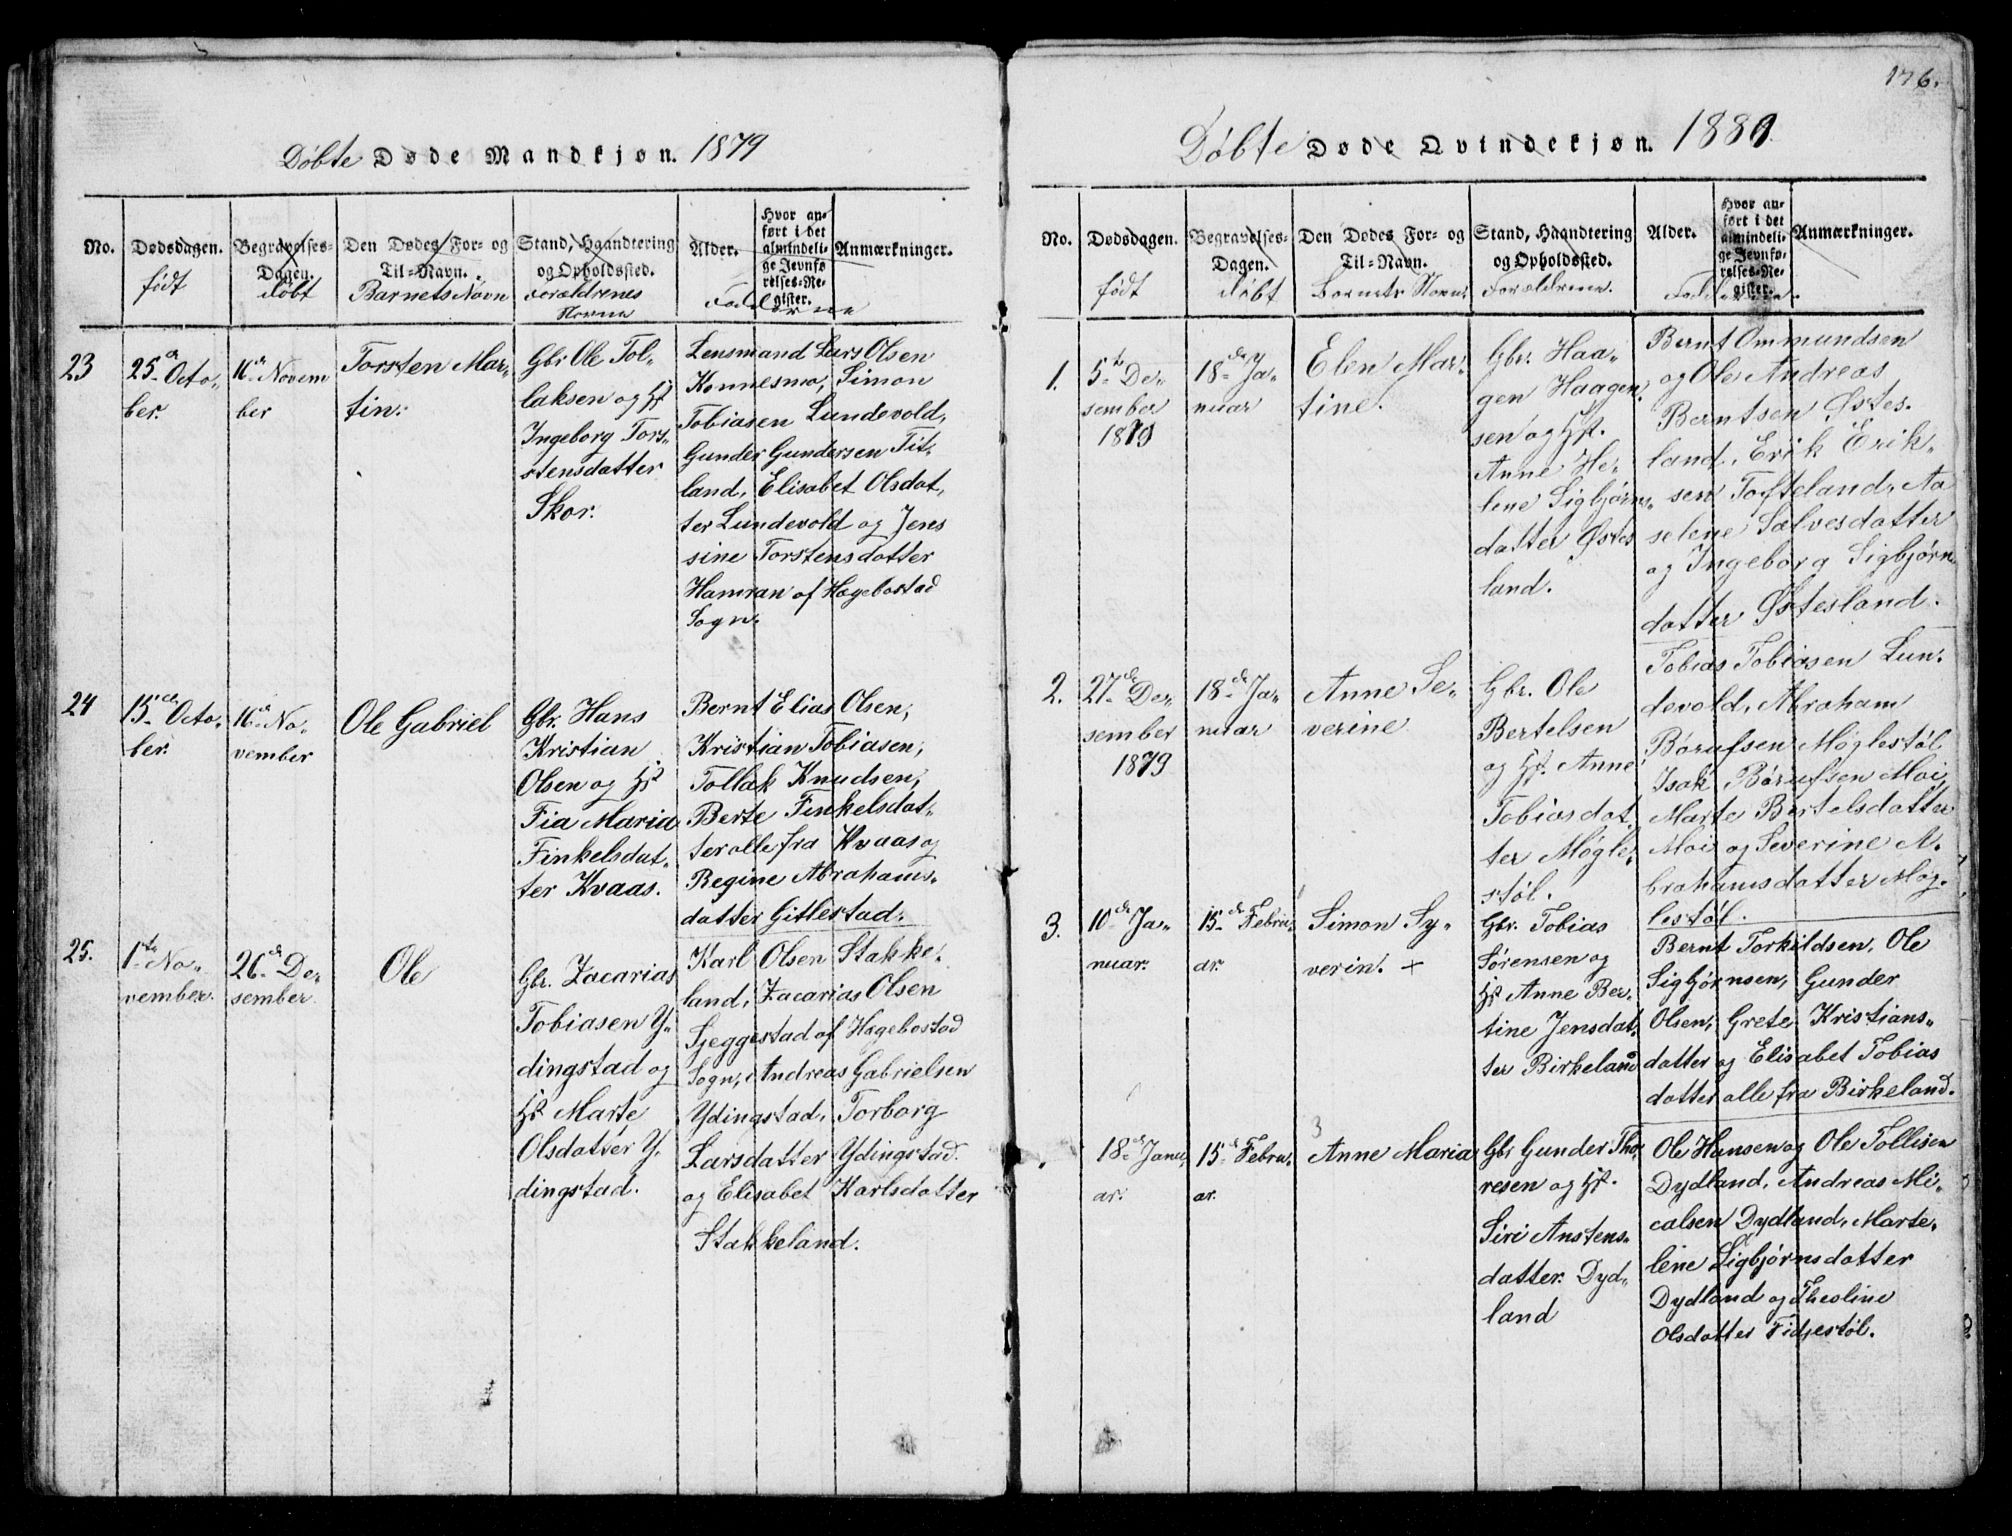 Döbte Døde Mandkjøn. 1879
No.
Dødsdagen.
født
Begravelses-
Dagen.
döbt
Den Dødes For- og
Til-Navn.
Barnets Navn
Stand, Haandtering
og Opholdssted.
Forældrenes
Navne
Alder.
Hvor an-
ført i det
almindeli-
ge Jevnfø-
relses-Re-
gister.
Anmærkninger.
Fadderne
23
25de Octo-
ber.
16de Novem
ber
Torsten Mar-
tin.
Gbr Ole Tol-
laksen og Hst
Ingeborg Tors-
stensdatter
Skor.
Lensmand Lars Olsen
Konnesmo, Simon
Tobiasen Lundevold,
Gunder Gundersen Tit-
land, Elisabet Olsdat-
ter Lundevold og Jens
sine Torstensdatter
Hamran af Hægebostad
Sogn.
24
15de Octo-
ber.
16de No-
vember
Ole Gabriel
Gbr. Hans
Kristian
Olsen og Hst
Fia Maria
Finkelsdat-
ter Kvaas.
Bernt Elias Olsen,
Kristian Tobiasen,
Tollak Knudsen,
Berte Finkelsdat-
ter alle fra Kvaas og
Regine Abrahams-
datter Gitlestad.
25.
1te No-
vember.
26de De-
sember.
Ole
Gbr. Zacarias
Tobiasen Y-
dingstad og
Hst Marte
Olsdatter Y-
dingstad.
Karl Olsen Stakke-
land, Zacarias Olsen
Sjeggestad af Hægebostad
Sogn, Andreas Gabrielsen
Ydingstad, Torborg
Larsdatter Ydingstad
og Elisabet Karlsdatter
Stakkeland.
176.
Döbte Døde Qvindekjøn. 1880.
No.
Dødsdagen.
født
Begravelses-
Dagen.
döbt
Den Dødes For- og
Til-Navn.
Barnets Navn.
Stand, Haandtering
og Opholdssted.
Forældrene.
Alder.
Hvor an-
ført i det
almindeli-
ge Jevnfø-
relses-Re-
gister.
Anmærkninger.
Fadderne.
1.
5te De-
sember
1879
18de Ja-
nuar
Elen Mar-
tine.
Gbr. Haa-
gen Haagen-
sen og Hst.
Anne He-
lene Sigbjørns-
datter Østes
land.
Bernt Ommundsen
og Ole Andreas
Berntsen Østes-
land, Erik Erik-
sen Tofteland, Aa
selene Sælvesdatter
og Ingeborg Sigbjørn-
datter Østesland.
2.
27de De-
sember
1879
18de Ja-
nuar
Anne Se-
verine
Gbr. Ole
Bertelsen
og Hst. Anne
Tobiasdat-
ter Møgle-
støl.
Tobias Tobiasen Lun-
devold, Abraham
Børufsen Møglestøl,
Isak Børufsen Moi,
Marte Bertelsdatter
Moi og Severine A-
brahamsdatter Møg-
lestøl.
3.
10de Ja-
nuar.
15de Febru-
ar.
Simon Sy-
verin. +
Gbr. Tobias
Sørensen og
Hst Anne Ber-
tine Jensdat-
ter Birkeland
Bernt Torkildsen, Ole
Sigbjørnsen, Gunder
Olsen, Grete Kristians-
datter og Elisabet Tobias
datter alle fra Birkeland.
3
18de Janu-
ar.
15de Febru-
ar.
Anne Maria
Gbr Gunder Tho-
resen og Hst.
Siri Anstens-
datter Dyd-
land
Ole Hansen og Ole Tollisen
Dydland, Andreas Mi-
calsen Dydland, Marte-
lene Sigbjørnsdatter
Dydland og Theoline
Olsdatter Fidjestøl.